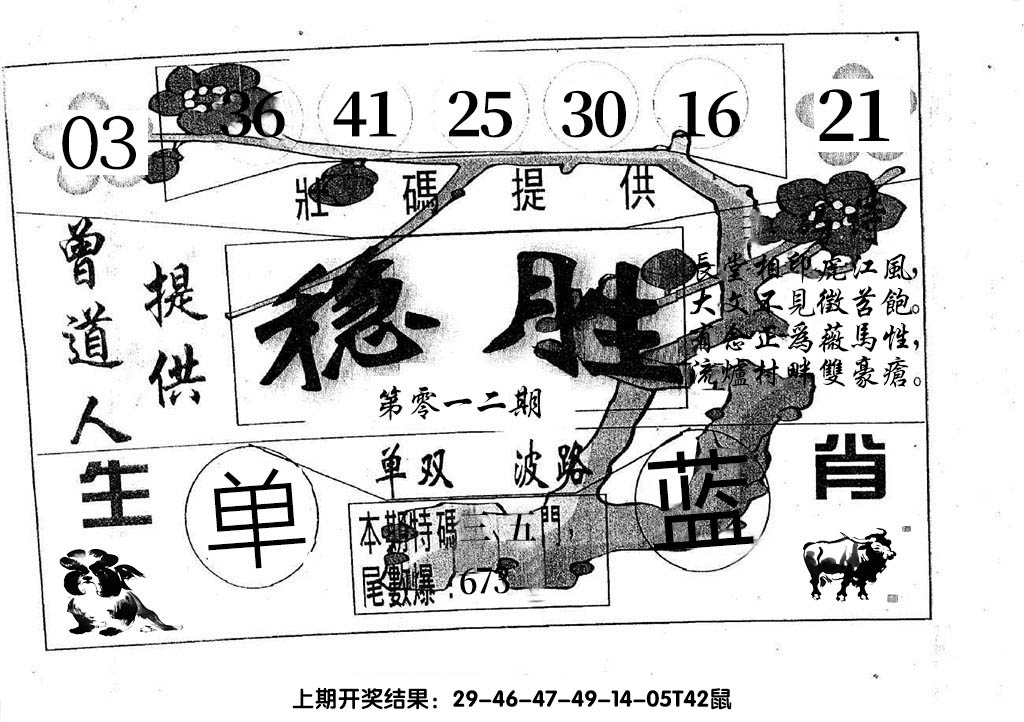 03 36 41 25 30 16 21
壯碼提供
特
曾道人
提供
稳胜
第零一二期
長堂相印尾江風，
大文不見徵苦飽。
有念正爲薇馬性，
流爐村畔雙豪瘡。
单双 波路
生肖
单
蓝
本期特碼三、五門，
尾數爆：673
上期开奖结果：29-46-47-49-14-05T42鼠